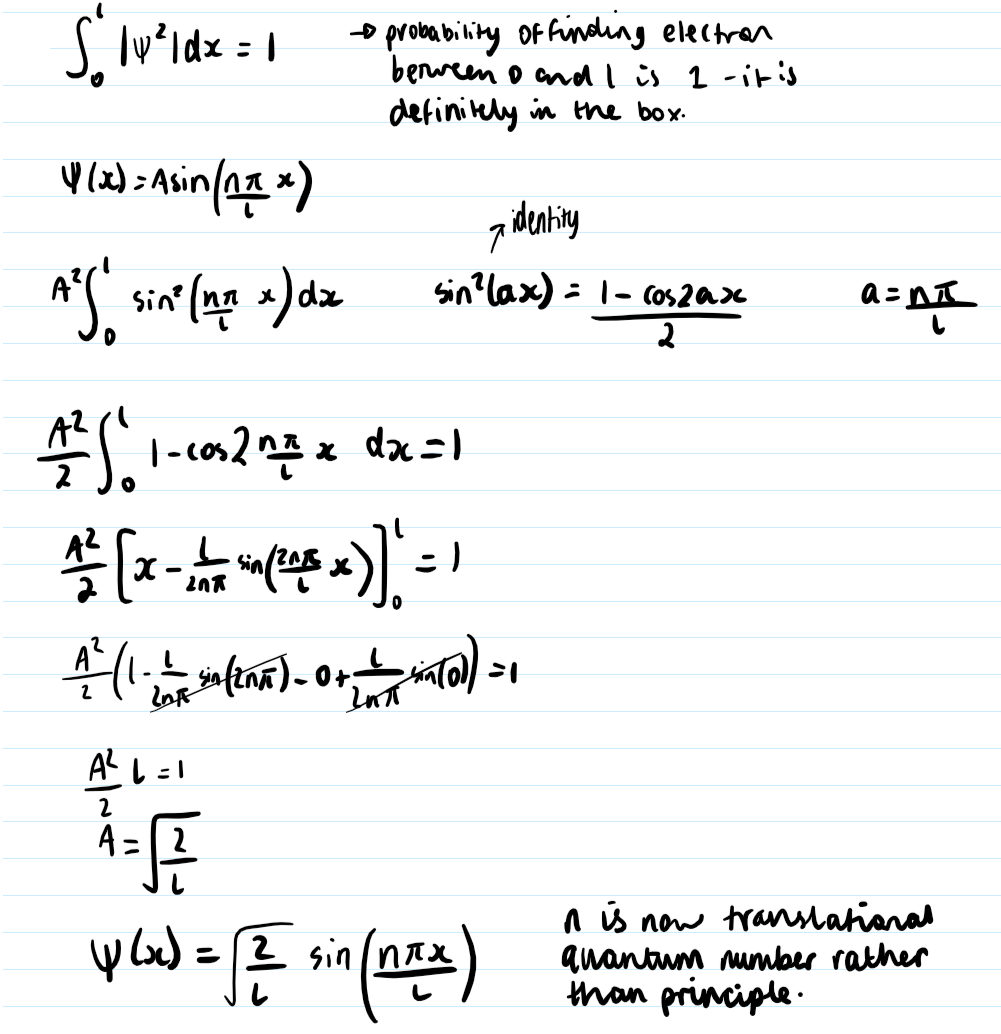 ∫₀ˡ |ψ²|dx = 1 → probability of finding electron
between 0 and l is 1 - it is
definitely in the box.
ψ(x) = Asin(nπ/L x)
↗ identity
A² ∫₀ˡ sin²(nπ/L x)dx sin²(ax) = (1 - cos2ax)/2 a = nπ/L
A²/2 ∫₀ˡ 1 - cos2 nπ/L x dx = 1
A²/2 [x - L/2nπ sin(2nπ/L x)]₀ˡ = 1
A²/2 (l - L/2nπ sin(2nπ) - 0 + L/2nπ sin(0)) = 1
A²/2 L = 1
A = √(2/L)
ψ(x) = √(2/L) sin(nπx/L) n is now translational
quantum number rather
than principle.